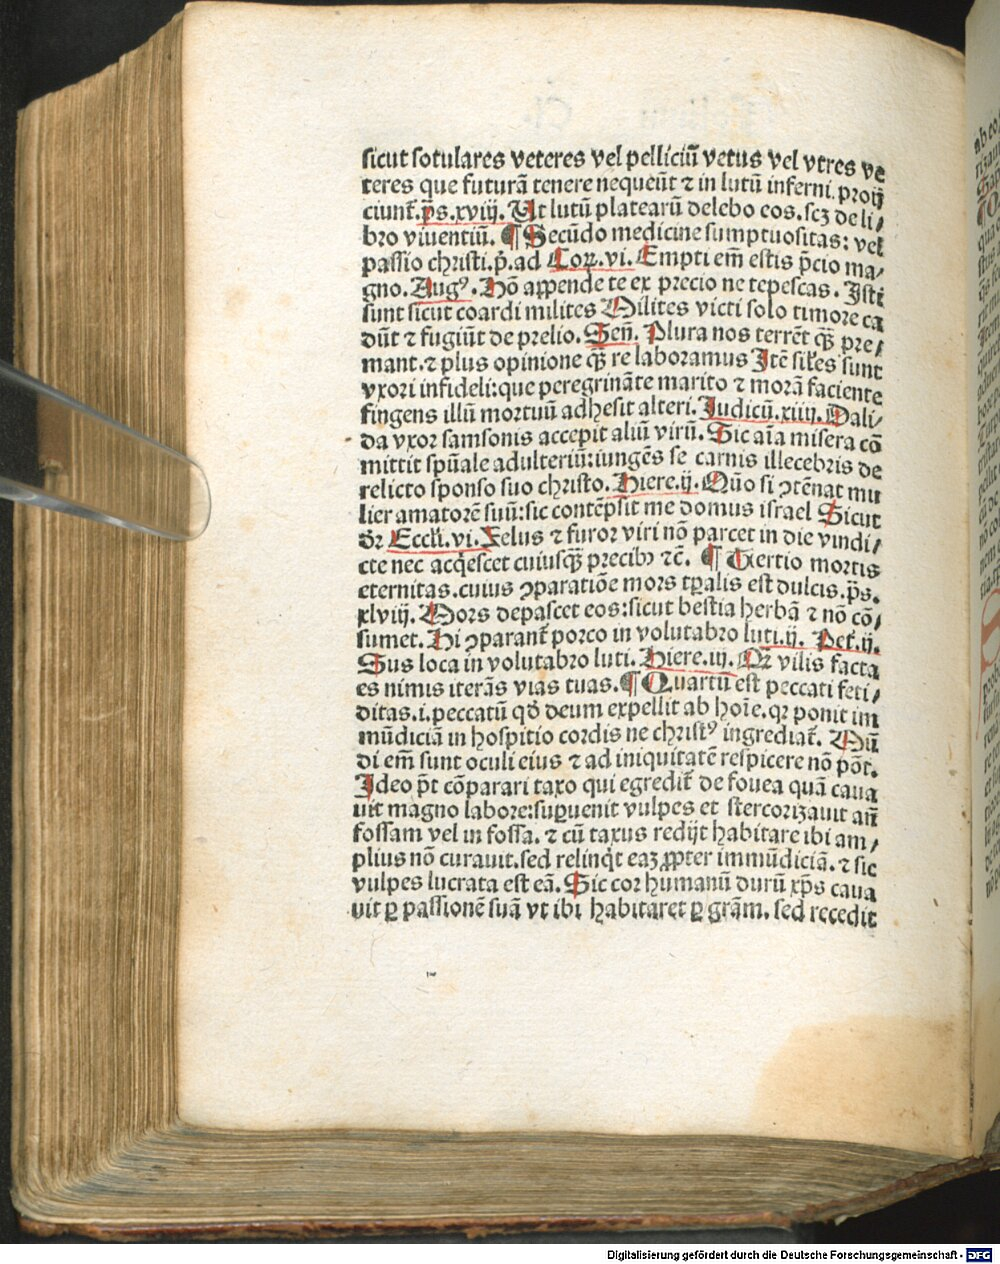 sicut sotulares veteres vel pelliciū vetus vel vtres ve
teres que futurā tenere nequeūt ⁊ in lutū inferni proij
ciunt᷑.p̄s.xviij. Ut lutū platearū delebo eos.scꝫ de li⸗
bro viuentiū. ¶ Secūdo medicine sumptuositas: vel
passio christi.p̄.ad Coꝝ.vi. Empti em̄ estis p̄cio ma⸗
gno. Augꝰ. Hō appende te ex precio ne tepescas. Isti
sunt sicut coardi milites Milites victi solo timore ca
dūt ⁊ fugiūt de prelio. Sen̄. Plura nos terrēt qȝ̄ pre⸗
mant.⁊ plus opinione qȝ̄ re laboramus Itē siłes sunt
vxori infideli:que peregrināte marito ⁊ morā faciente
fingens illū mortuū adhesit alteri. Judicū.xiiij. Dali⸗
da vxor samsonis accepit aliū virū. Sic aīa misera cō
mittit spūale adulteriū:iungēs se carnis illecebris de
relicto sponso suo christo. Hiere.ij. Quō si ꝯtēnat mu
lier amatorē suū:sic contēpsit me domus israel Sicut
dꝛ̄ Eccłi.vi. Zelus ⁊ furor viri nō parcet in die vindi⸗
cte nec acq̇escet cuiusqȝ̄ precibꝰ ⁊c̄. ¶ Tertio mortis
eternitas.cuius ꝯparatiōe mors tꝑalis est dulcis.p̄s.
xlviij. Mors depascet eos:sicut bestia herbā ⁊ nō cō⸗
sumet. Hi ꝯparant᷑ porco in volutabro luti.ij. Pet̄.ij.
Sus lota in volutabro luti. Hiere.iij. Qꝛ̄ vilis facta
es nimis iterās vias tuas.¶ Quartū est peccati feti⸗
ditas.i.peccatū qd̄ deum expellit ab hoīe.qꝛ ponit im
mūdiciā in hospitio cordis ne christꝰ ingrediat᷑. Mū
di em̄ sunt oculi eius ⁊ ad iniquitatē respicere nō pōt.
Ideo p̄t cōparari taxo qui egredit᷑ de fouea quā caua
uit magno labore:suꝑuenit vulpes et stercorizauit an̄
fossam vel in fossa. ⁊ cū taxus redijt habitare ibi am⸗
plius nō curauit.sed relinq̇t eaꝫ ꝓpter immūdiciā.⁊ sic
vulpes lucrata est eā. Sic cor humanū durū xp̄s caua
uit ꝑ passionē suā vt ibi habitaret ꝑ grām. sed recedit
Digitalisierung gefördert durch die Deutsche Forschungsgemeinschaft - DFG